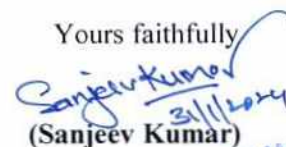 Yours faithfully
Sanjeev Kumar
31/1/2024
(Sanjeev Kumar)